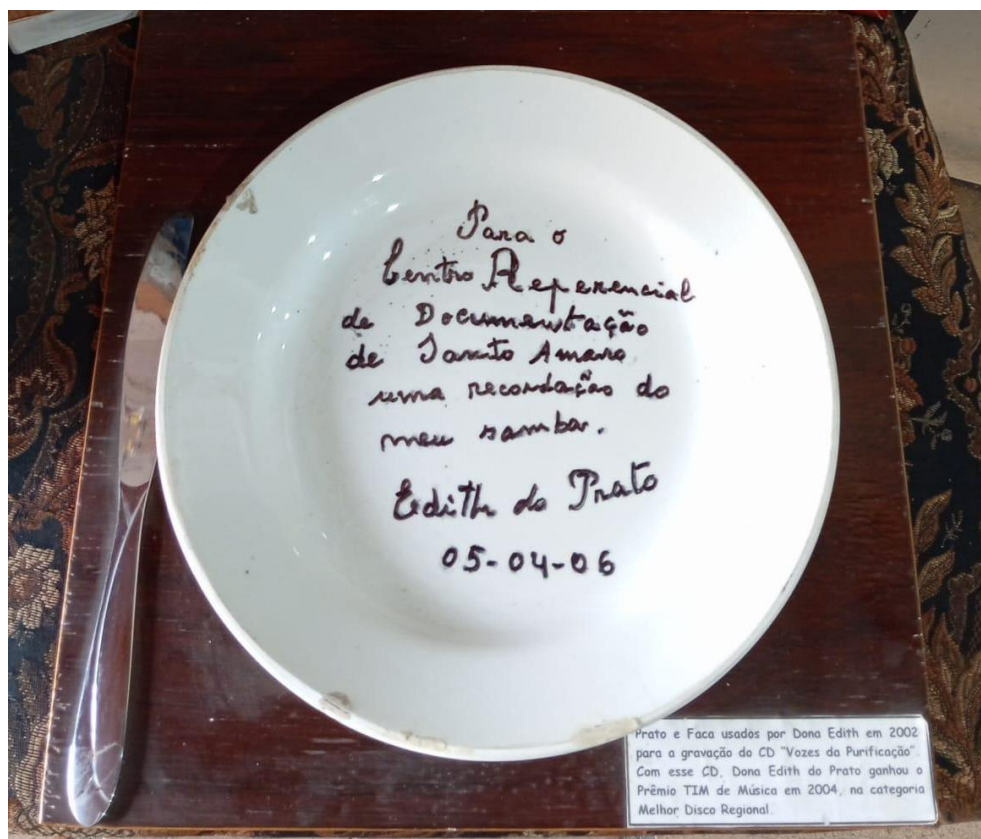 Para o
Centro Referencial
de Documentação
de Santo Amaro
uma recordação do
meu samba.
Edith do Prato
05-04-06
Prato e Faca usados por Dona Edith em 2002
para a gravação do CD "Vozes da Purificação".
Com esse CD, Dona Edith do Prato ganhou o
Prêmio TIM de Música em 2004, na categoria
Melhor Disco Regional.